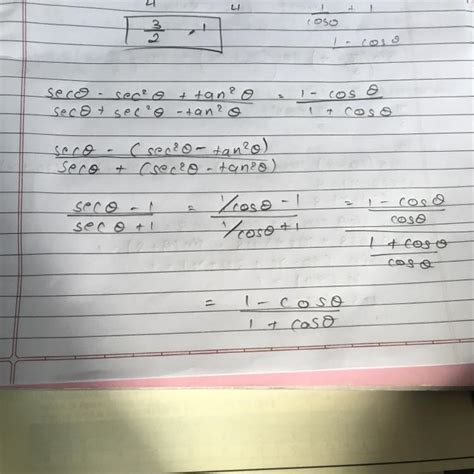 4 4 1/cosθ - 1
3/2 , 1
1 - cosθ
secθ - sec²θ + tan²θ / secθ + sec²θ - tan²θ = 1 - cos θ / 1 + cosθ
secθ - (sec²θ - tan²θ) / secθ + (sec²θ - tan²θ)
secθ - 1 / sec θ + 1 = 1/cosθ - 1 / 1/cosθ + 1 = 1 - cosθ / cosθ / 1 + cosθ / cosθ
= 1 - cosθ / 1 + cosθ